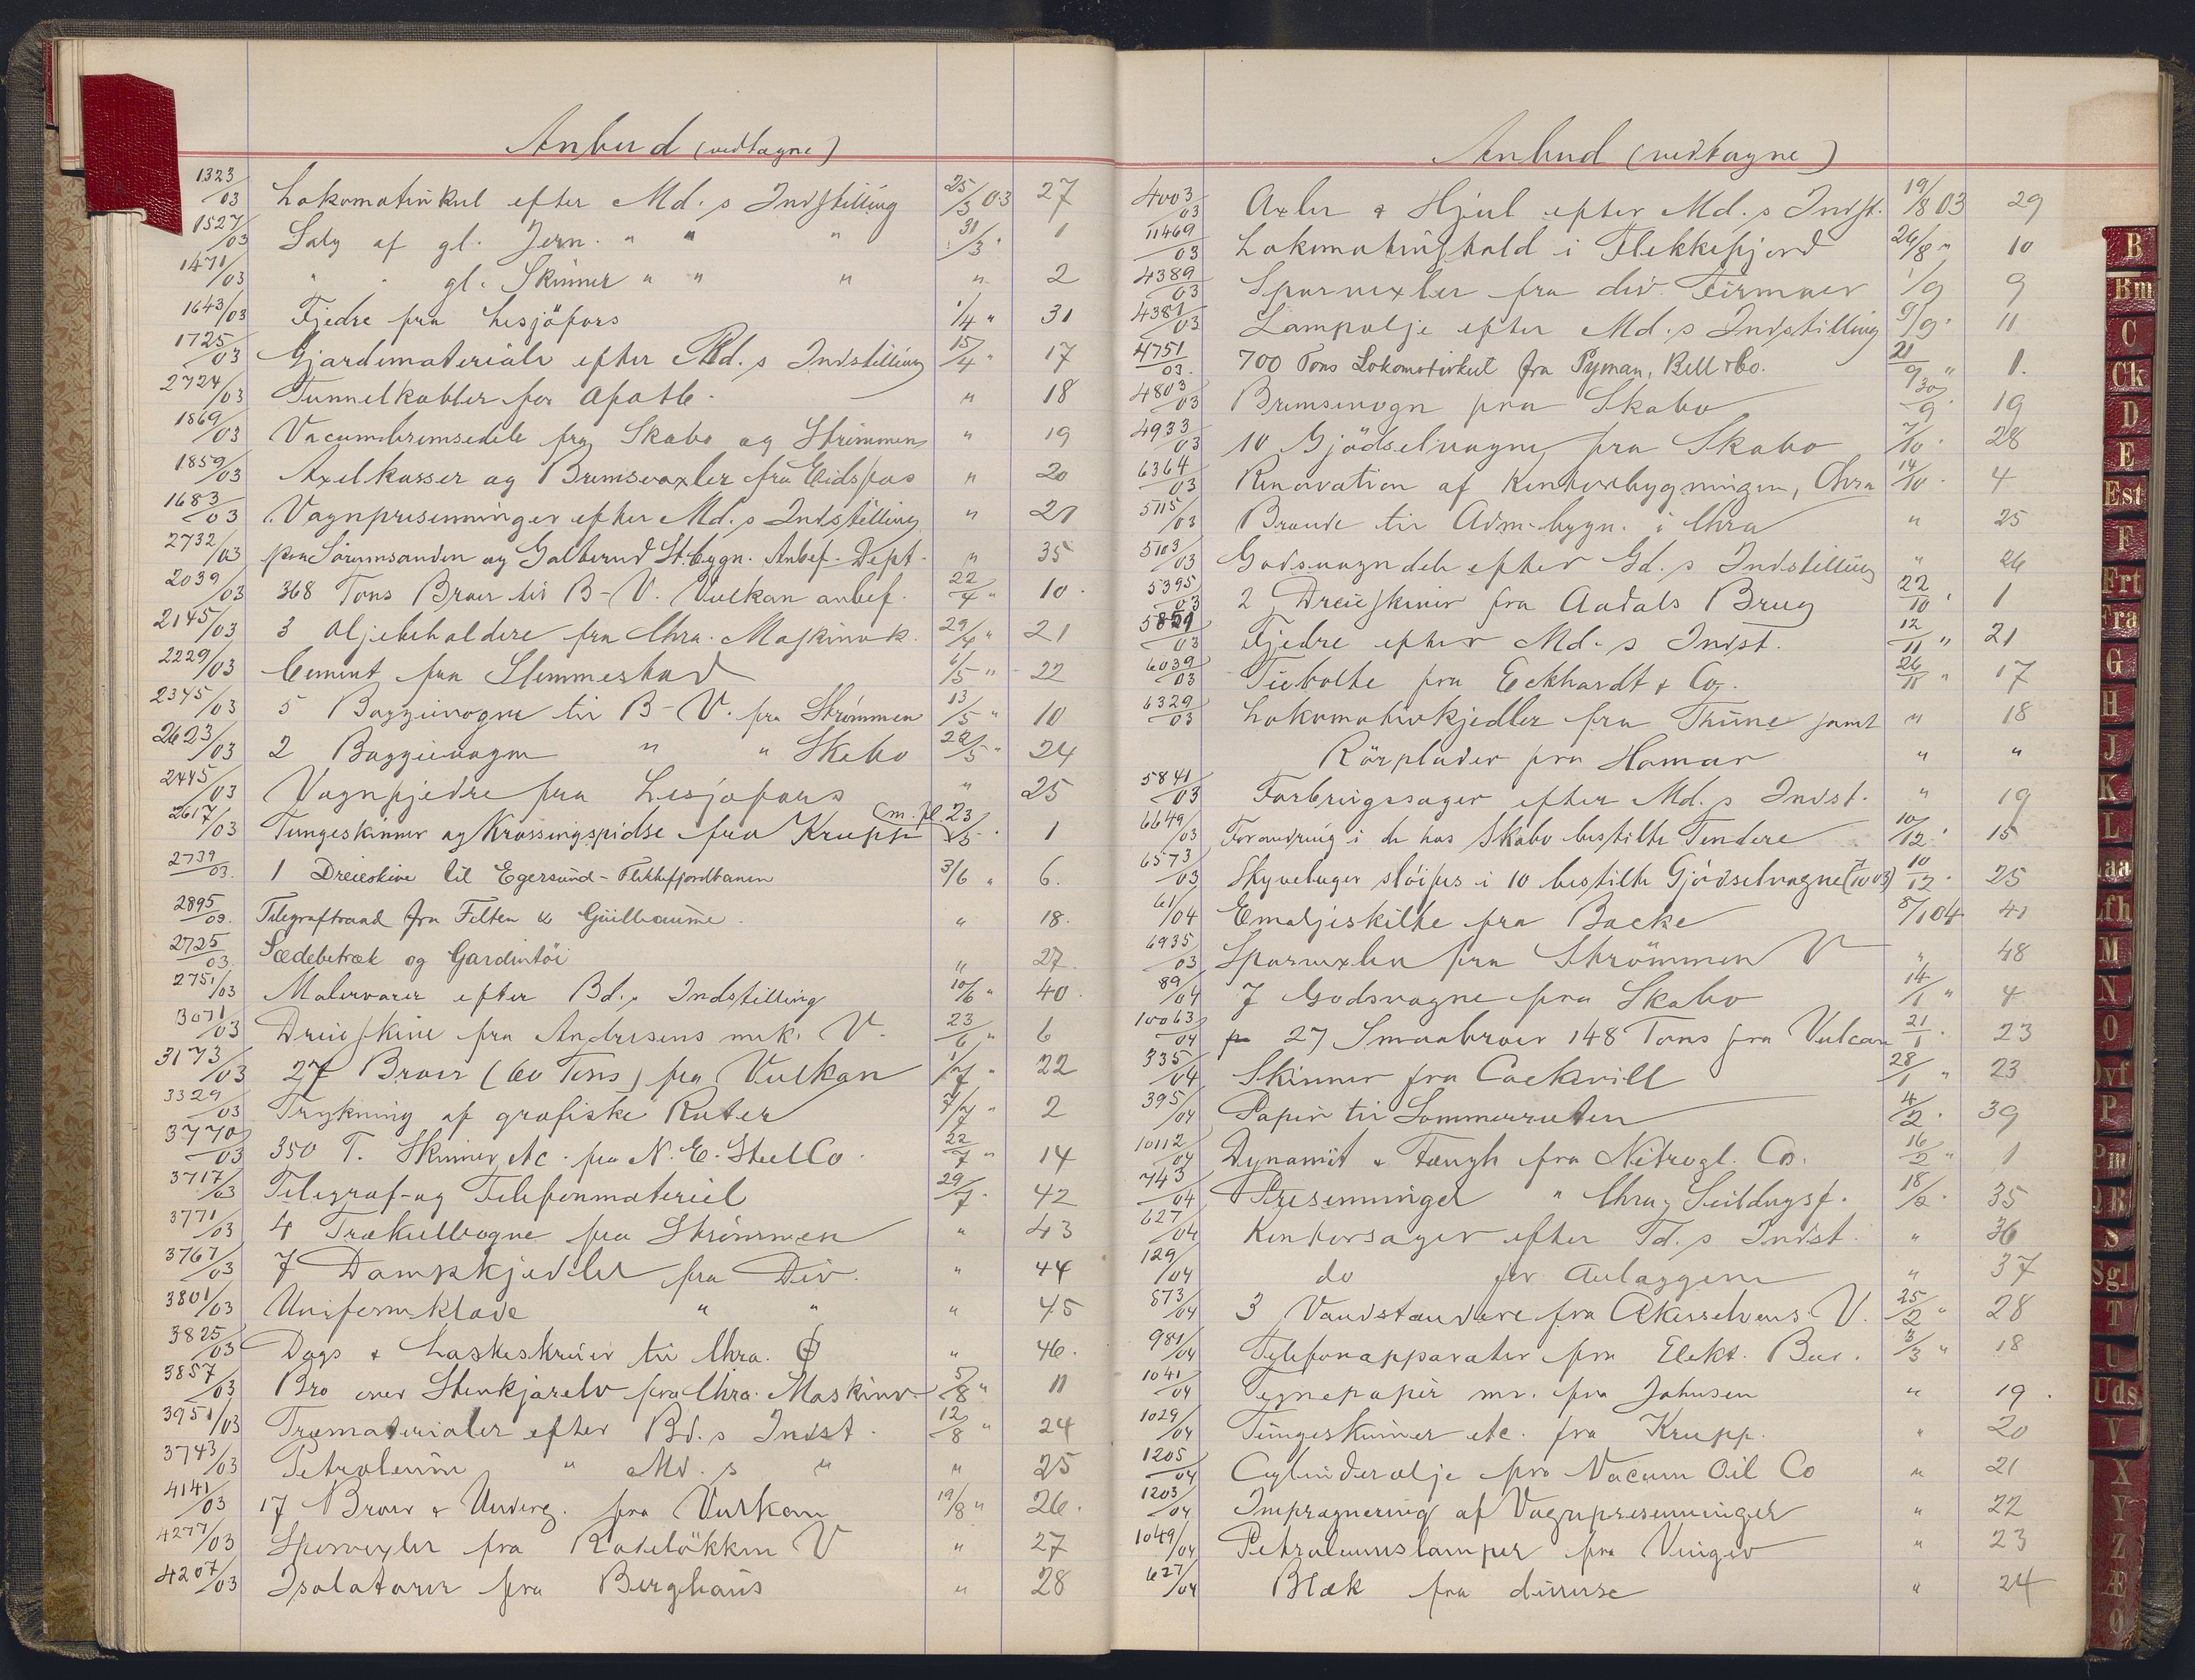 Anbud (vedtagne)
1323/03 Lokomotivkul efter Md.s Indstilling 25/3 03 27
1527/03 Salg af gl. Jern. " " " 31/3 " 1
1471/03 " " gl. Skinner " " " " 2
1643/03 Fjedre fra Lesjöfors 1/4 " 31
1725/03 Gjærdematerialer efter Bd.s Indstilling 15/4 " 17
2724/03 Tunnelkabler for " 18
1869/03 Vacumbremsedele fra Skabo og Strømmen " 19
1859/03 Axelkasser og Bremseaxler fra Eidsfos " 20
1683/03 Vognpresenninger efter Md.s Indstilling " 21
2732/03 paa Sørumsanden og Galterud St.bygn. Anbef. Dept. " 35
2039/03 368 Tons Broer til B-V. Vulkan anbef. 22/4 " 10.
2145/03 3 Oljebeholdere fra Chra. Maskinv.k. 29/4 " 21
2229/03 Cement fra Slemmestad 6/5 " 22
2345/03 5 Boggievogne til B-V. fra Strømmen 13/5 " 10
2623/03 2 Boggievogne " " Skabo 20/5 " 24
2445/03 Vognfjedre fra Lesjøfors " 25
2617/03 Tungeskinner og Krossingspidse fra Krupp m. fl. 23/5 " 1
2739/03. 1 Dreieskive til Egersund-Flekkefjordbanen 3/6 " 6.
2895/03. Telegraftraad fra Felten & Guilleaume. " 18.
2725/03. Sædebetræk og Gardintöi " 27.
2751/03 Malervarer efter Bd.s Indstilling 10/6 " 40.
3071/03 Dreieskive fra Andresens mek. V. 23/6 " 6
3173/03 27 Broer (60 Tons) fra Vulkan 1/7 " 22
3329/03 Trykning af grafiske Ruter 7/7 " 2
3770/03 350 T. Skinner etc. fra N. E. Steel Co. 22/7 " 14
3717/03 Telegraf- og Telefonmateriel 29/7 " 42
3771/03 4 Trækulvogne fra Strømmen " 43
3767/03 7 Dampkjedler fra Div. " 44
3801/03 Uniformklæde " " " 45
3825/03 Dogs & Laskeskruer til Chra. Ø " 46.
3857/03 Bro over Stenkjærelv fra Chra. Maskinv. 5/8 " 11
3951/03 Træmaterialer efter Bd.s Indst. 12/8 " 24
3743/03 Petroleum " Md.s " " 25
4141/03 17 Broer & Underg. fra Vulkan 19/8 " 26.
4277/03 Sporvexler fra Rodeløkken V " 27
4207/03 Isolatorer fra Berghaus " 28
Anbud (vedtagne)
4003/03 Axler & Hjul efter Md.s Indst. 19/8 03 29
11469/03 Lokomotivhold i Flekkefjord 26/8 " 10
4389/03 Sporvexler fra div. Firmaer 1/9 9
4381/03 Lampolje efter Md.s Indstilling 9/9 " 11
4751/03. 700 Tons Lokomotivkul fra Pyman, Bell & Co. 21/9 " 1.
4803/03 Bremsevogn fra Skabo 30/9 " 19
4933/03 10 Gjödselvogne fra Skabo 7/10 " 28
6364/03 Renovation af Kontorbygningen, Chra 14/10 " 4
5115/03 Brænde til Adm.bygn. i Chra " 25
5103/03 Godsvogndele efter Gd.s Indstilling " 26
5395/03 2 Dreieskiver fra Aadals Brug 22/10 " 1
5829/03 Fjedre efter Md.s Indst. 12/11 " 21
6039/03 Tiebolte fra Eckhardt & Co. 26/11 " 17
6329/03 Lokomotivkjedler fra Thune samt " 18
Rörplader fra Hamar " "
5841/03 Forbringssager efter Md.s Indst. " 19
6649/03 Forandring i de hos Skabo bestilte Tendere 10/12 " 15
6573/03 Skyvebuger slöifes i 10 bestilte Gjödselvogne (7/10 03) 10/12 " 25
61/04 Emaljeskilte fra Backe 8/1 04 41
6935/03 Sporvexler fra Strömmen V " 48
89/04 7 Godsvogne fra Skabo 14/1 " 4
10063/04 27 Smaabroer 148 Tons fra Vulcan 21/1 " 23
335/04 Skinner fra Cockerill 28/1 " 23
395/04 Papir til Sommerruten 4/2 " 39
10112/04 Dynamit & Fængh fra Nitrogl. Co. 16/2 " 1
743/04 Presenninger " Chra Seildugsf. 18/2 " 35
627/04 Kontorsager efter Td.s Indst. " 36
129/04 do for Anlæggene " 37
873/04 3 Vandstandere fra Akerselvens V. 25/2 " 28
981/04 Telefonapparater fra Elekt. Bur. 3/3 " 18
1041/04 Tegnepapir m.v. fra Johnsen " 19.
1029/04 Tungeskinner etc. fra Krupp. " 20
1205/04 Cylinderolje fra Vacum Oil Co " 21
1203/04 Imprægnering af Vognpresenninger " 22
1049/04 Petroleumslamper fra Vinger " 23
627/04 Blæk fra diverse " 24
B
Bm
C
Ck
D
E
Est
F
Frt
Fra
G
H
J
K
L
Laa
Lfh
M
N
O
Ovf
P
Pm
QR
S
Sgl
T
U
Uds
V
X
Y
Z
Æ
Ø